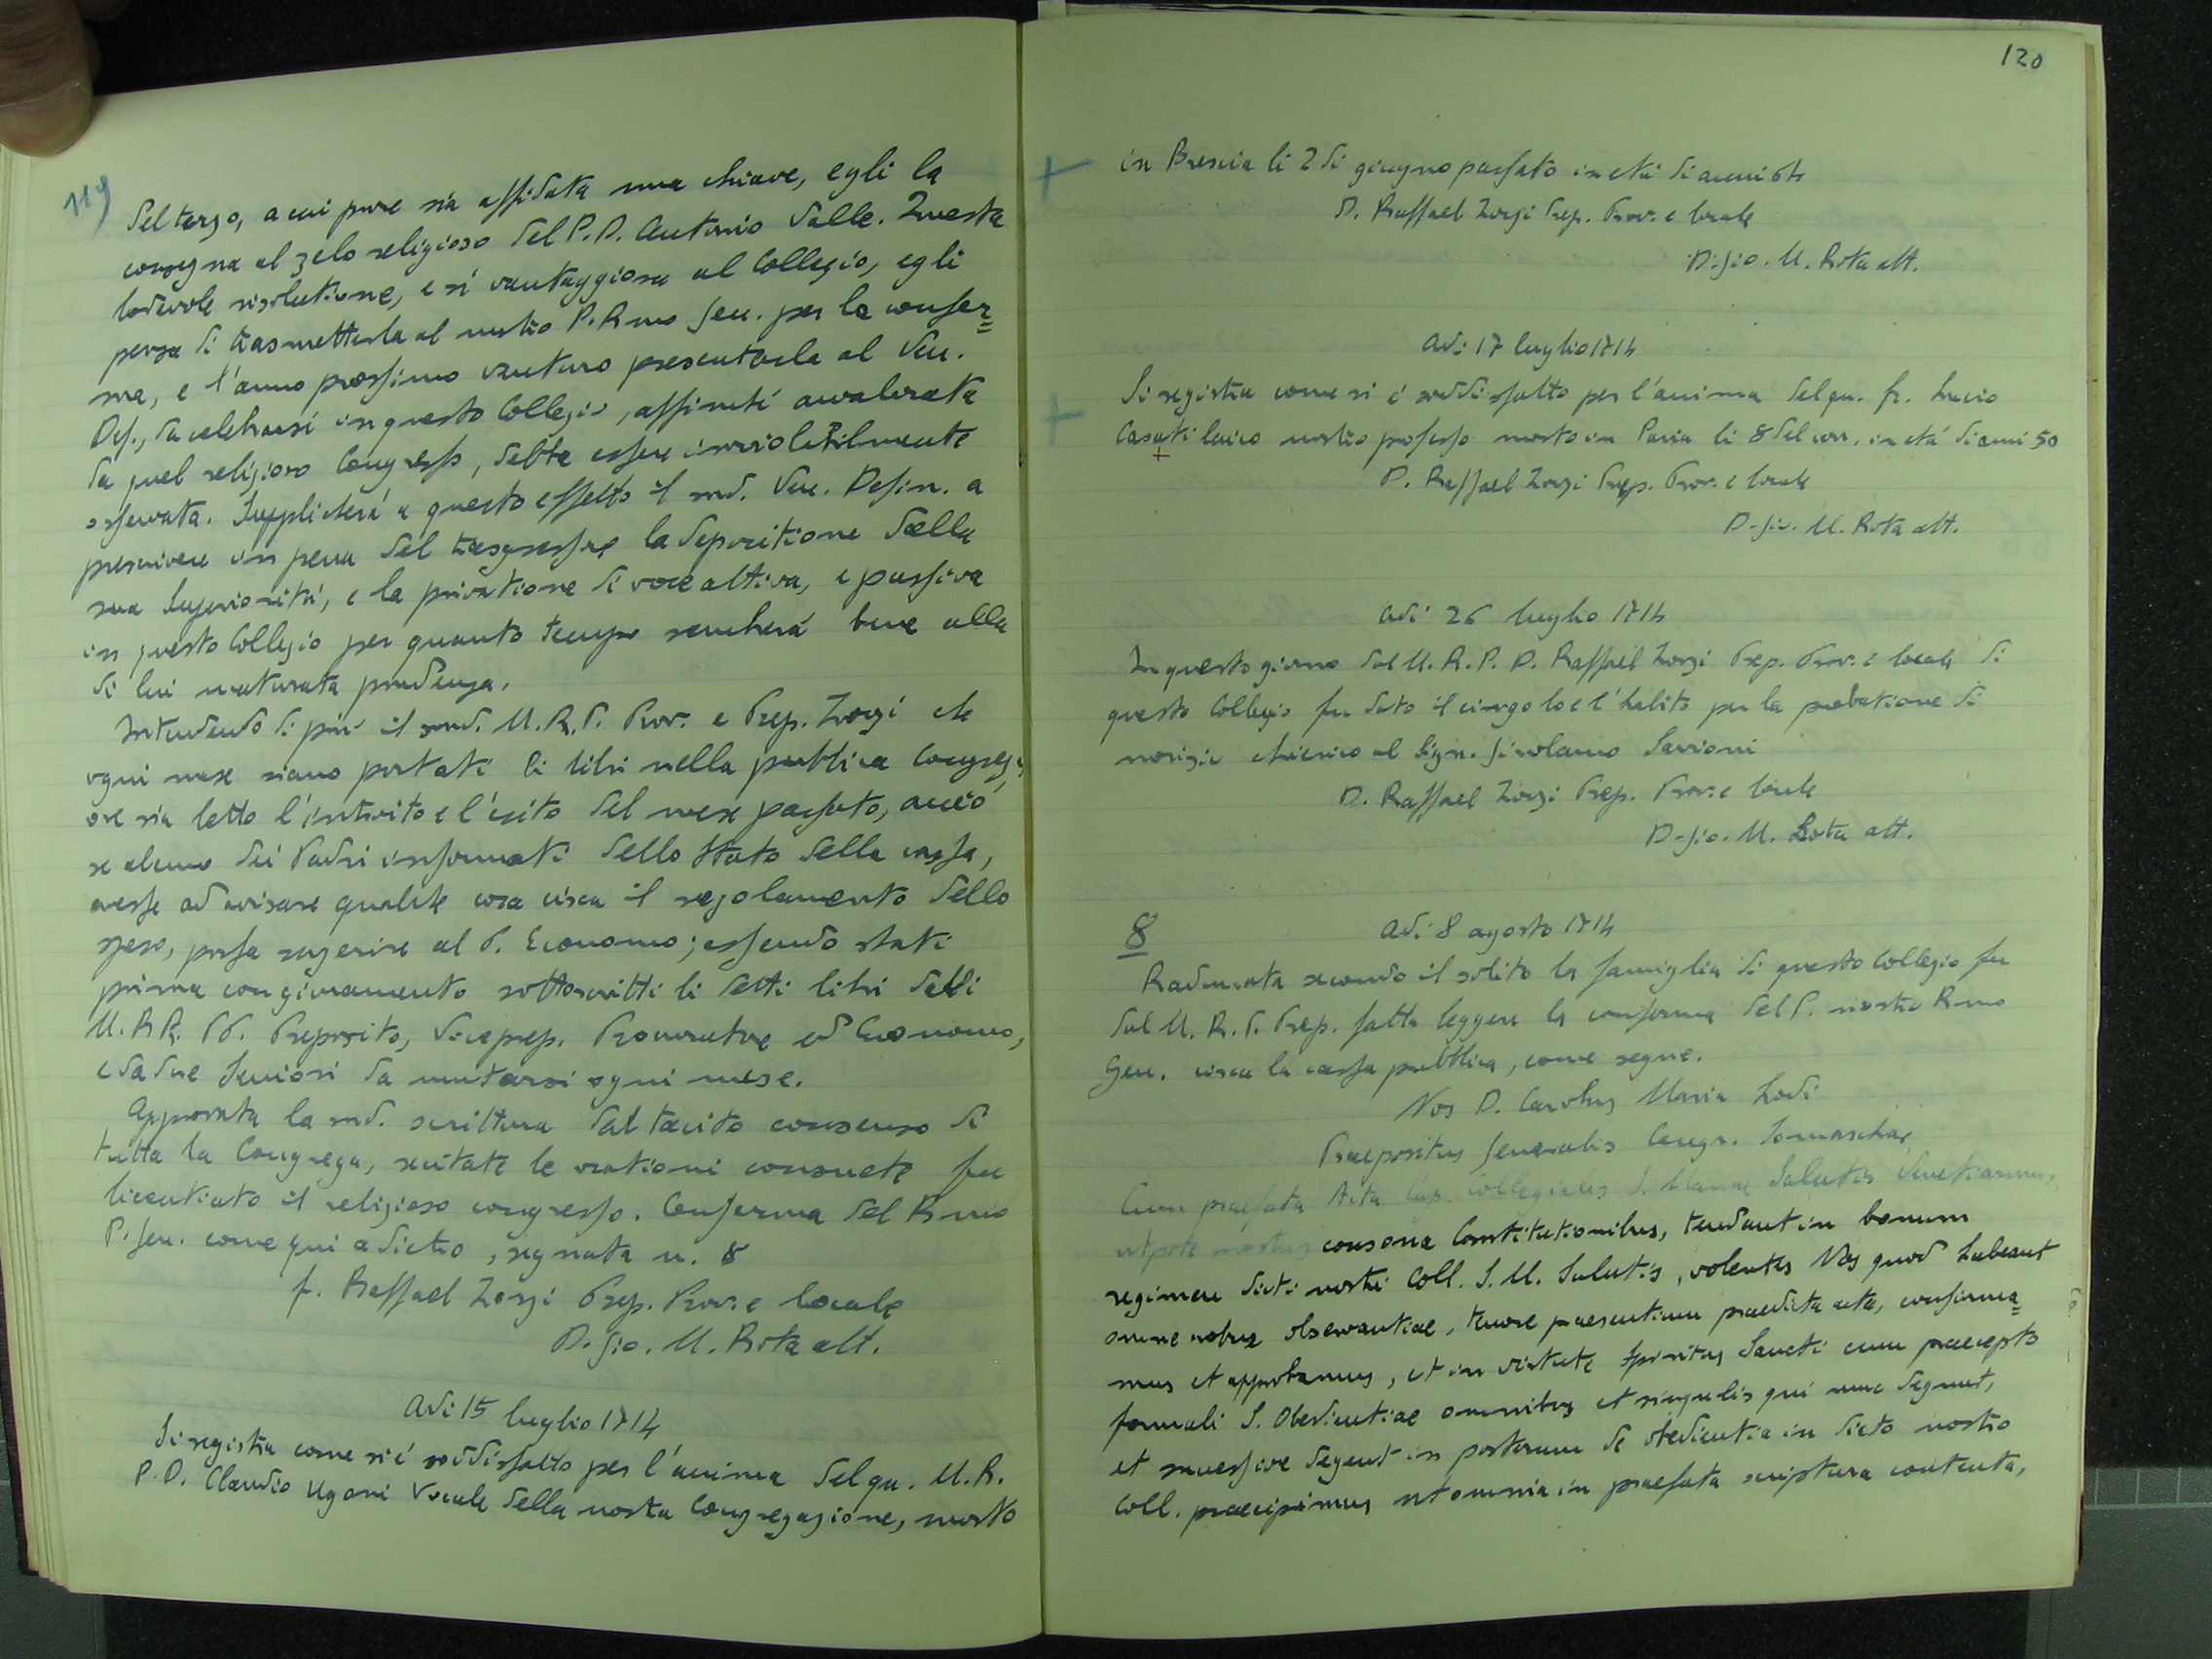 119
del terzo, a cui pure sia affidata una chiave, egli la
consegna al zelo religioso del P.D. Antonio Valle. Questa
lodevole risolutione, e sì vantaggiosa al Collegio, egli
pensa di trasmetterla al nostro P. Rmo Gen. per la confer=
ma, e l'anno prossimo venturo presentarla al Ven.
Def., da celebrarsi in questo Collegio, affinché avvalorata
da quel religioso Congresso, debba essere inviolabilmente
osservata. Supplicherà a questo effetto il md. Ven. Defin. a
prescrivere in pena del trasgressore la depositione dalla
sua Superiorità, e la privatione di voce attiva, e passiva
in questo Collegio per quanto tempo sembrerà bene alla
di lui maturata prudenza.
Intendendo di più il md. M.R.P. Prov. e Prep. Zorzi che
ogni mese siano portati li libri nella pubblica Congrega
ove sia letto l'introito e l'esito del mese passato, acciò
se alcuno dei Padri informati dello stato della cassa,
avesse ad avisare qualche cosa circa il regolamento dello
speso, possa sugerire al P. Economo; essendo stati
prima con giuramento sottoscritti li detti libri dalli
M.RR. PP. Preposito, Viceprep. Procuratore ed Economo,
e da due Seniori da mutarsi ogni mese.
Approvata la md. scrittura dal tacito consenso di
tutta la Congrega, recitate le orationi consuete fu
licentiato il religioso congresso. Conferma del Rmo
P. Gen. come qui adietro, segnata n. 8
f. Raffael Zorzi Prep. Prov. e locale
D. Gio. M. Rota att.
Adi 15 luglio 1714
Si registra come si è soddisfatto per l'anima del qu. M.R.
P.D. Claudio Ugoni Vocale della nostra Congregazione, morto
120
in Brescia li 2 di giugno passato in età di anni 64
D. Raffael Zorzi Prep. Prov. e locale
D. Gio. M. Rota att.
Adi 17 luglio 1714
Si registra come si è soddisfatto per l'anima del qu. fr. Lucio
Casati laico nostro professo morto in Pavia li 8 del corr. in età di anni 50
D. Raffael Zorzi Prep. Prov. e locale
D. Gio. M. Rota att.
Adi 26 luglio 1714
In questo giorno dal M.R.P.D. Raffael Zorzi Prep. Prov. e locale di
questo Collegio fu dato il cingolo e l'habito per la probatione di
novizio chierico al Sign. Girolamo Savioni
D. Raffael Zorzi Prep. Prov. e locale
D. Gio. M. Rota att.
8
Adi 8 agosto 1714
Radunata secondo il solito la famiglia di questo Collegio fu
dal M.R.P. Prep. fatta leggere la conferma del P. nostro Rmo
Gen. circa la cassa pubblica, come segue.
Nos D. Carolus Maria Lodi
Praepositus Generalis Congr. Somaschae
Cum praefata Acta Cap. Collegialis S. Mariae Salutis Venetiarum,
utpote nostris consona Constitutionibus, tendant in bonum
regimen dicti nostri Coll. S. M. Salutis, volentes Nos quod habeant
omne robur observantiae, tenore praesentium praedicta acta, confirma=
mus et approbamus, et in virtute Spiritus Sancti cum praecepto
formali S. Obedientiae omnibus et singulis qui nunc degunt,
et successive degent in posterum de obedientia in dicto nostro
Coll. praecipimus ut omnia in praefata scriptura contenta,